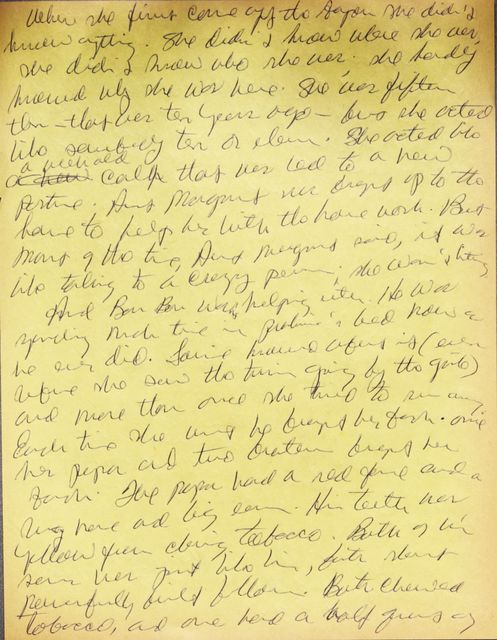 When she first come off the             she didn't
know anything. She didn't know where she was,
she didn't know who she was. she hardly
knowed why she was here. She was fifteen
then — that was ten years ago — but she acted
like somebody ten or eleven. She acted like
a weaned
calf that was led to a new
pasture. Aunt Margaret was           up to the
house to help her with the house work. But
most of the time, Aunt Margaret said, it was
like talking to a crazy person; she wasn't
And Bon Bon wasn't helping either. He was
spending much time in            's bed now as
he ever did. Louise knowed about it (even
before she saw the           going by the gate)
and more than once she tried to run away.
Each time she        he brought her back. once
her papa and two brothers brought her
back. The papa had a red face and a
long nose and big ears. His teeth was
yellow from chewing tobacco. Both of his
sons was just like him, both short
powerfully built fellows. Both chewed
tobacco, and one had a half          of